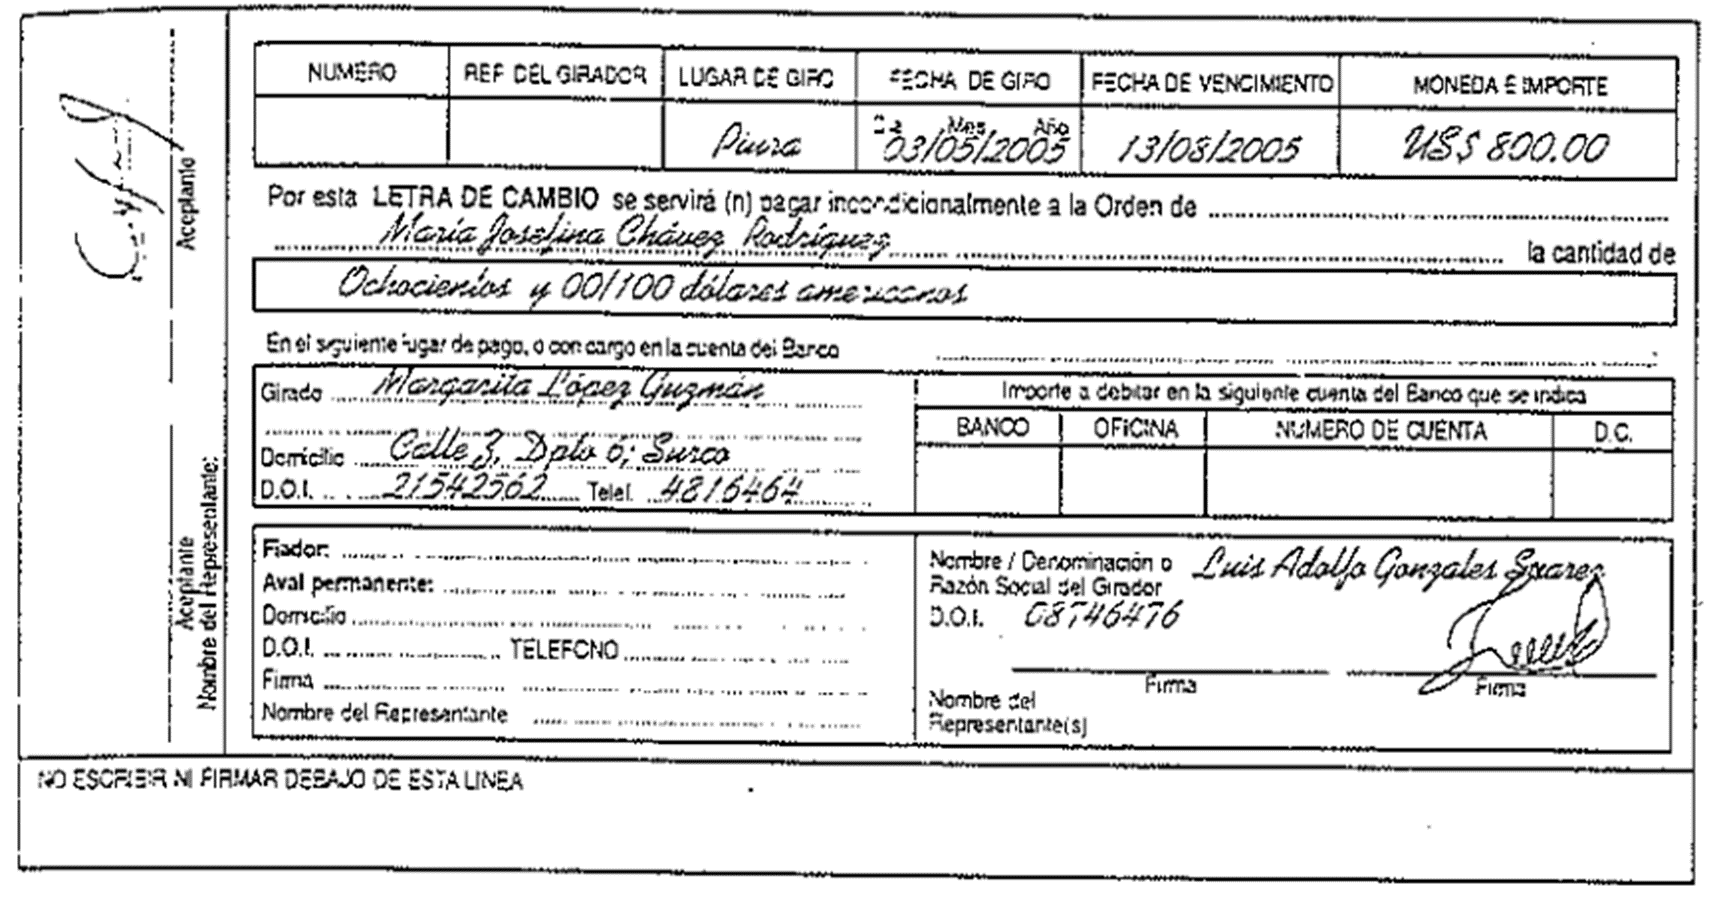 NUMERO REF DEL GIRADOR LUGAR DE GIRO FECHA DE GIRO FECHA DE VENCIMIENTO MONEDA E IMPORTE
Mes Año
Piura 03/05/2005 13/08/2005 US$ 800.00
Por esta LETRA DE CAMBIO se servirá (n) pagar incondicionalmente a la Orden de
María Josefina Chávez Rodríguez la cantidad de
Ochocientos y 00/100 dólares americanos
En el siguiente lugar de pago, o con cargo en la cuenta del Banco
Girado Margarita López Guzmán
Domicilio Calle 3, Dpto 6; Surco
D.O.I. 21542562 Telef. 4816464
Importe a debitar en la siguiente cuenta del Banco que se indica
BANCO OFICINA NUMERO DE CUENTA D.C.
Fiador:
Aval permanente:
Domicilio
D.O.I. TELEFONO
Firma
Nombre del Representante
Nombre / Denominación o Luis Adolfo Gonzales Suarez
Razón Social del Girador
D.O.I. 08746476
Firma Firma
Nombre del
Representante(s)
Aceptante
Aceptante
Nombre del Representante:
NO ESCRIBIR NI FIRMAR DEBAJO DE ESTA LINEA